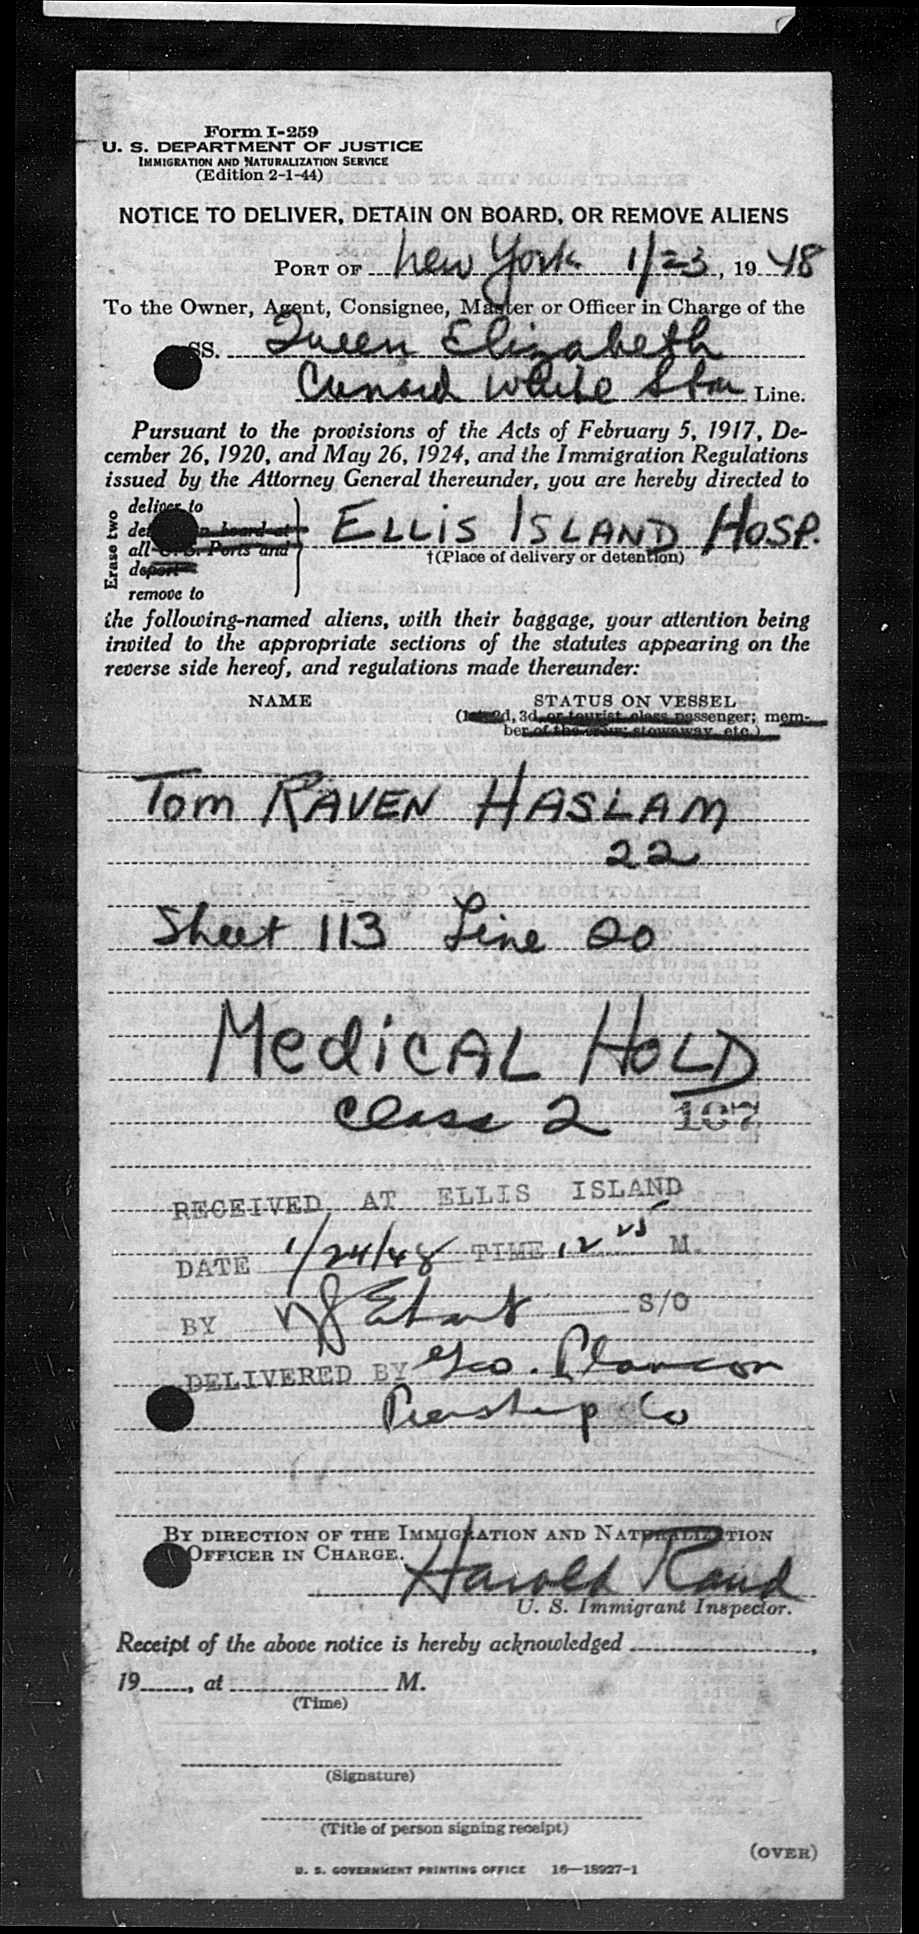 Form I-259
U. S. DEPARTMENT OF JUSTICE
IMMIGRATION AND NATURALIZATION SERVICE
(Edition 2-1-44)
NOTICE TO DELIVER, DETAIN ON BOARD, OR REMOVE ALIENS
PORT OF New York 1/23, 1948
To the Owner, Agent, Consignee, Master or Officer in Charge of the
SS. Queen Elizabeth
Cunard White Star Line.
Pursuant to the provisions of the Acts of February 5, 1917, De-
cember 26, 1920, and May 26, 1924, and the Immigration Regulations
issued by the Attorney General thereunder, you are hereby directed to
Erase two
deliver to
on board at
all U. S. Ports and
deport
remove to
ELLIS ISLAND HOSP.
†(Place of delivery or detention)
the following-named aliens, with their baggage, your attention being
invited to the appropriate sections of the statutes appearing on the
reverse side hereof, and regulations made thereunder:
NAME STATUS ON VESSEL
(1st, 2d, 3d, or tourist class passenger; mem-
ber of the crew; stowaway, etc.)
Tom RAVEN HASLAM
22
Sheet 113 Line 20
MEDICAL HOLD
Class 2 107
RECEIVED AT ELLIS ISLAND
DATE 1/24/48 TIME 12 M.
BY S/O
DELIVERED BY Geo.
Co
BY DIRECTION OF THE IMMIGRATION AND NATURALIZATION
OFFICER IN CHARGE.
Harold Rand
U. S. Immigrant Inspector.
Receipt of the above notice is hereby acknowledged ,
19 , at M.
(Time)
(Signature)
(Title of person signing receipt)
(OVER)
U. S. GOVERNMENT PRINTING OFFICE 16—18927-1